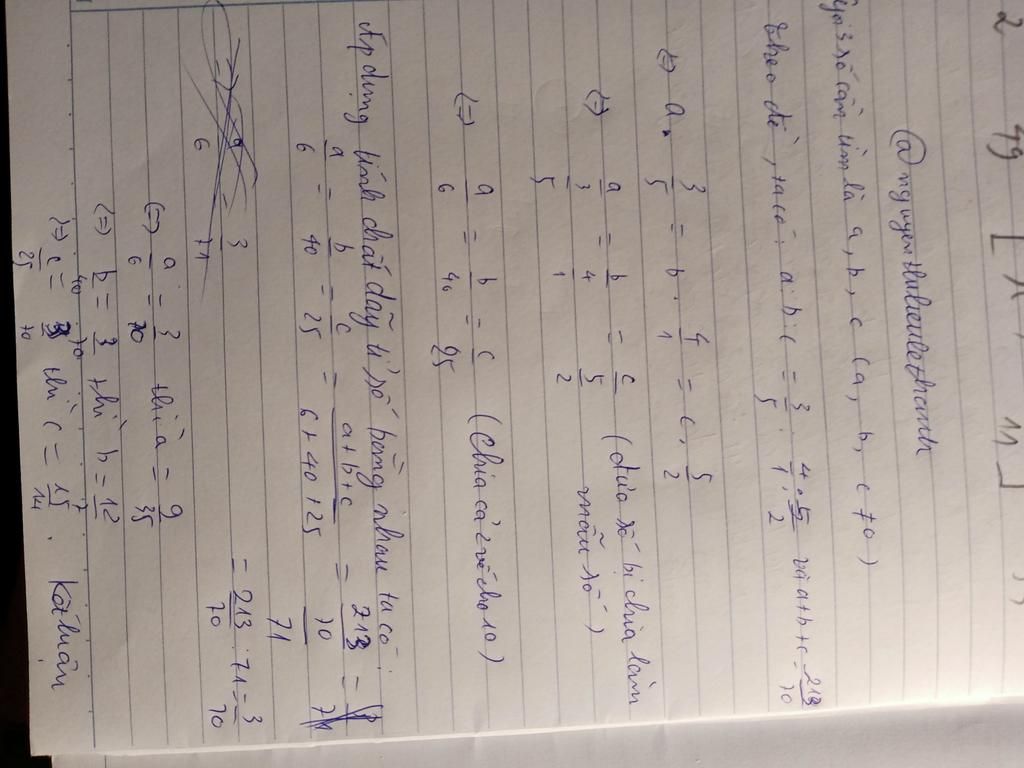 2 49 [ x 11 ]
@nguyenthuhoulezhanh
Gọi 3 số cần tìm là a, b, c (a, b, c ≠ 0)
Theo đề, ta có: a:b:c = 3/5 : 4/1 : 5/2 và a+b+c = 213/70
(=) a: 3/5 = b: 4/1 = c: 5/2
(=) a/(3/5) = b/(4/1) = c/(5/2) (đưa số bị chia làm
mẫu số)
(=) a/6 = b/40 = c/25 (Chia cả 2 vế cho 10)
Áp dụng tính chất dãy tỉ số bằng nhau ta có:
a/6 = b/40 = c/25 = (a+b+c)/(6+40+25) = (213/70)/71 =
= 213/70 : 71 = 3/70
(=) a/6 = 3/70 thì a = 9/35
(=) b/40 = 3/70 thì b = 12/7
(=) c/25 = 3/70 thì c = 15/14. Kết luận